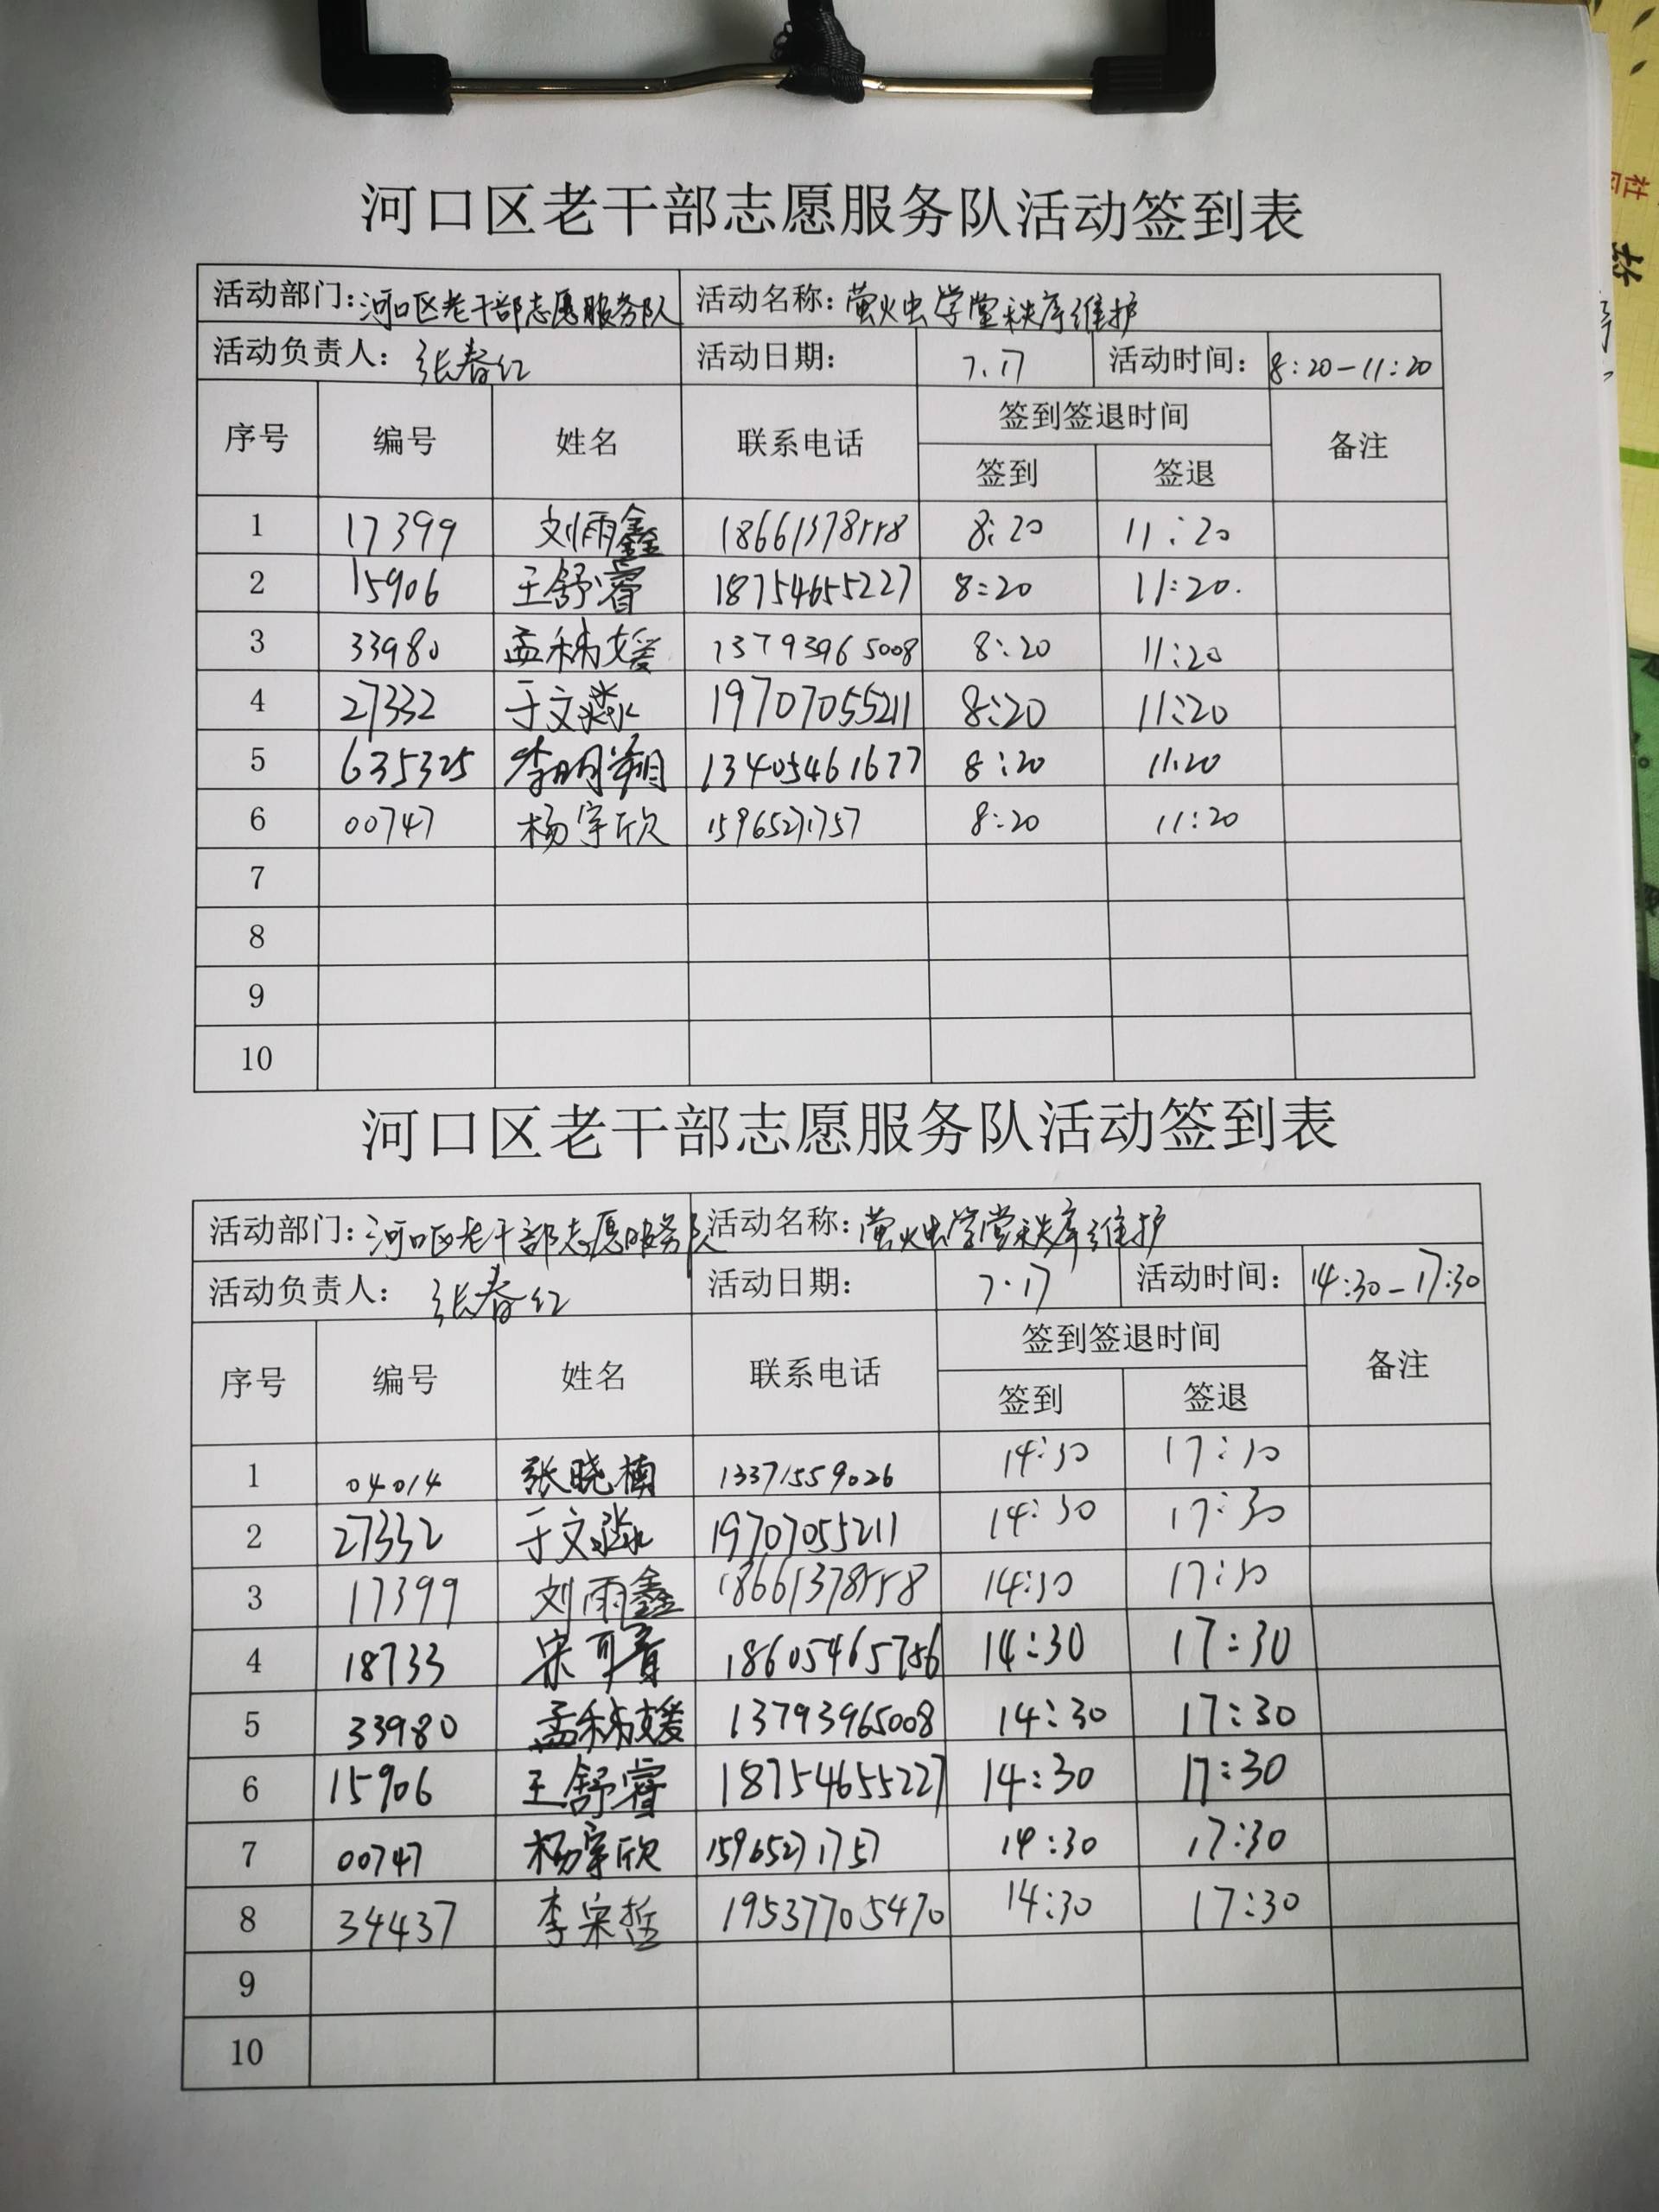 河口区老干部志愿服务队活动签到表
活动部门：河口区老干部志愿服务队 活动名称：萤火虫学堂秩序维护
活动负责人：张春红 活动日期： 7.17 活动时间： 8:20-11:20
序号 编号 姓名 联系电话 签到签退时间 备注
签到 签退
1 17399 刘雨鑫 18661378558 8:20 11:20
2 15906 王舒睿 18754655227 8:20 11:20.
3 33980 孟 媛 13793965008 8:20 11:20
4 27332 于文淼 19707055211 8:20 11:20
5 635325 李明翰 13405461677 8:20 11:20
6 00747 杨宇欣 15965271757 8:20 11:20
7
8
9
10
河口区老干部志愿服务队活动签到表
活动部门：河口区老干部志愿服务队 活动名称：萤火虫学堂秩序维护
活动负责人：张春红 活动日期： 7.17 活动时间： 14:30-17:30
序号 编号 姓名 联系电话 签到签退时间 备注
签到 签退
1 04014 张晓楠 13371559026 14:30 17:30
2 27332 于文淼 19707055211 14:30 17:30
3 17399 刘雨鑫 18661378558 14:30 17:30
4 18733 宋 18605465756 14:30 17:30
5 33980 孟 媛 13793965008 14:30 17:30
6 15906 王舒睿 18754655227 14:30 17:30
7 00747 杨宇欣 15965271757 14:30 17:30
8 34437 李宗哲 19537705470 14:30 17:30
9
10